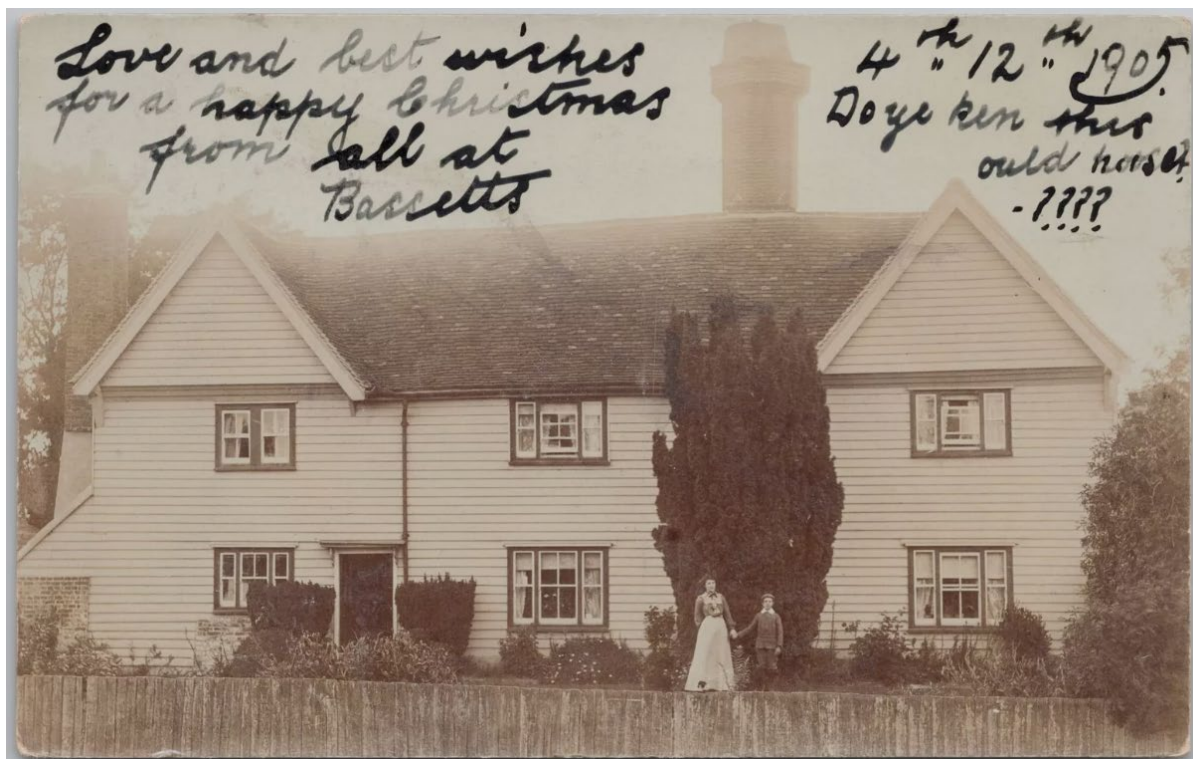 Love and best wishes
for a happy Christmas
from all at
Bassetts
4th " 12th " 1905.
Do ye ken this
ould house?
- ????